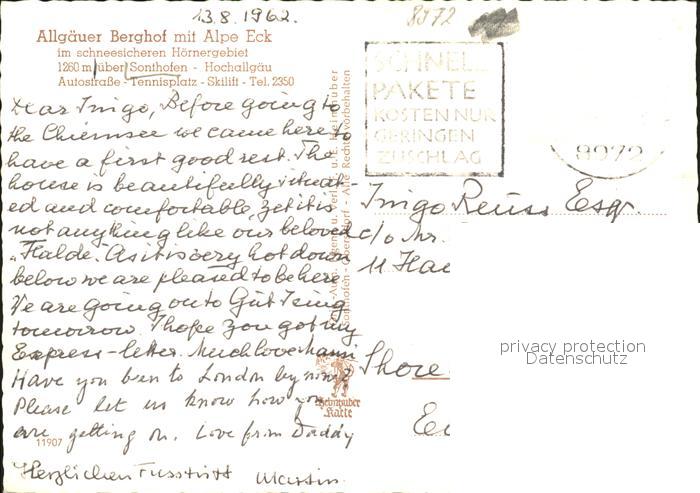 13.8.1962.
8972
Allgäuer Berghof mit Alpe Eck
im schneesicheren Hörnergebiet
1260 m über Sonthofen - Hochallgäu
Autostraße - Tennisplatz - Skilift - Tel. 2350
Dear Inigo, Before going to
the Chiemsee we came here to
have a first good rest. The
house is beautifully situat-
ed and comfortable, yet it is
not anything like our beloved
"Halde". As it is very hot down
below we are pleased to be here
We are going on to Gut Ising
tomorrow. I hope you got my
Express-letter. Much love Mami
Have you been to London by now?
Please let us know how you
are getting on. Love from Daddy
11907
Herzlichen Fusstritt Martin.
Alle Rechte vorbehalten
Heimhuber
Karte
SCHNELL
PAKETE
KOSTEN NUR
GERINGEN
ZUSCHLAG
8972
Inigo Reuss Esqr.
c/o Mr.
11 Hac
Shore
privacy protection
Datenschutz